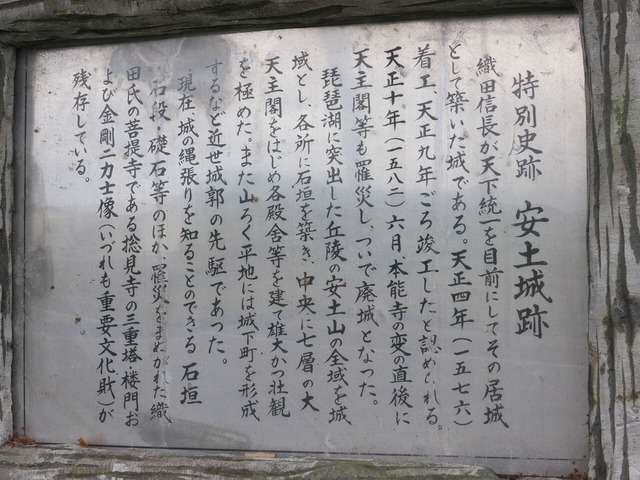 特別史跡 安土城跡
織田信長が天下統一を目前にしてその居城
として築いた城である。天正四年(一五七六)
着工、天正九年ごろ竣工したと認められる。
天正十年(一五八二)六月本能寺の変の直後に
天主閣等も罹災し、ついで廃城となった。
琵琶湖に突出した丘陵の安土山の全域を城
域とし、各所に石垣を築き、中央に七層の大
天主閣をはじめ各殿舎等を建て雄大かつ壮観
を極めた。また山ろく平地には城下町を形成
するなど近世城郭の先駆であった。
現在城の縄張りを知ることのできる石垣
石段・礎石等のほか、罹災をまぬがれた織
田氏の菩提寺である捴見寺の三重塔・楼門お
よび金剛二力士像(いづれも重要文化財)が
残存している。